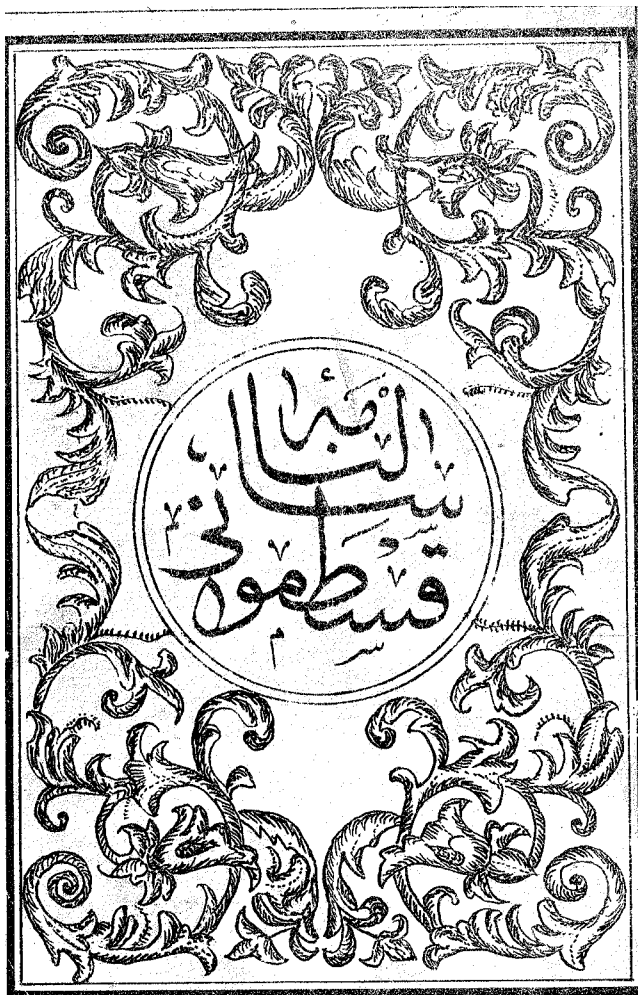 سالنامهٔ
قسطمونی